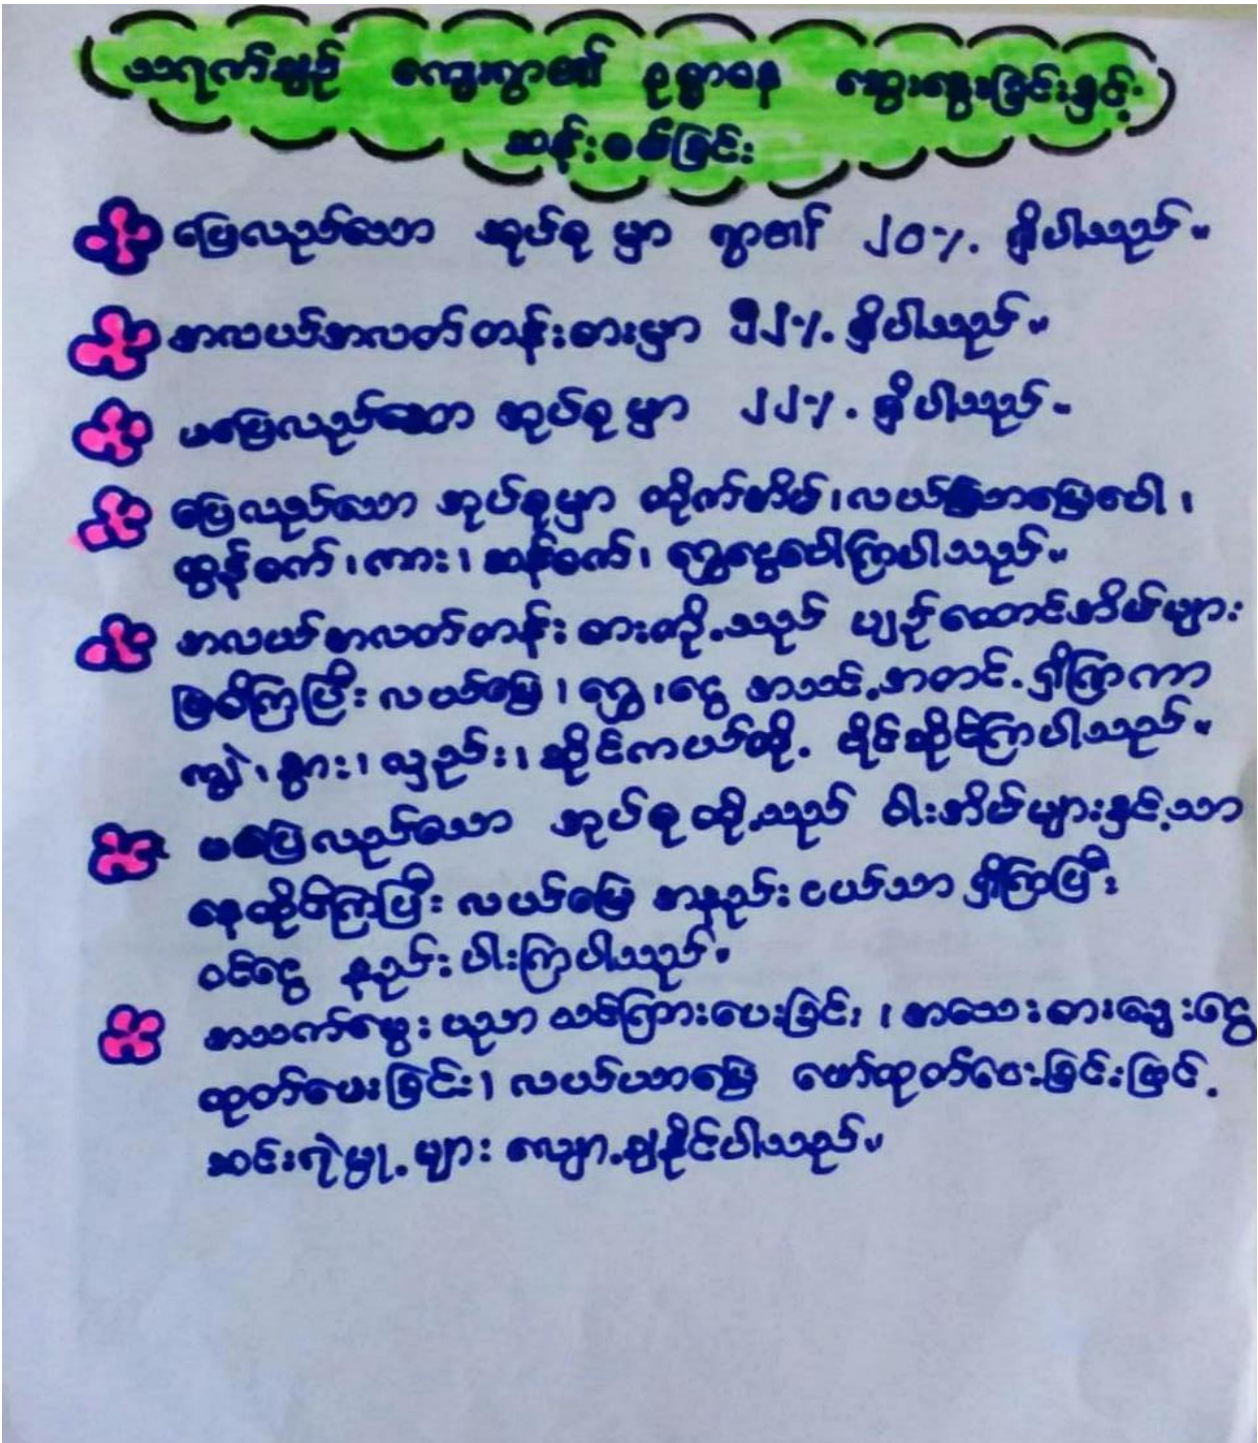 သရက်ချဉ် ကျေးရွာ၏ ဥစ္စာဓန ဆွေးနွေးခြင်းနှင့်
ဆန်းစစ်ခြင်း
ပြေလည်သော အုပ်စု မှာ ရွာ၏ ၂၀% ရှိပါသည်။
အလယ်အလတ်တန်းစားမှာ ၅၂% ရှိပါသည်။
မပြေလည်သော အုပ်စု မှာ ၂၂% ရှိပါသည်။
ပြေလည်သော အုပ်စုမှာ တိုက်အိမ်၊ လယ်ယာမြေပေါ၊
ထွန်စက်၊ ကား၊ ဆန်စက်၊ ရွှေငွေပေါကြပါသည်။
အလယ်အလတ်တန်း စားတို့သည် ပျဉ်ထောင်အိမ်များ
ဖြစ်ကြပြီး လယ်မြေ၊ ရွှေ၊ ငွေ အသင့်အတင့် ရှိကြကာ
ကျွဲ၊ နွား၊ လှည်း၊ ဆိုင်ကယ်တို့ ပိုင်ဆိုင်ကြပါသည်။
မပြေလည်သော အုပ်စုတို့သည် ဝါးအိမ်များနှင့်သာ
နေထိုင်ကြပြီး လယ်မြေ အနည်း ငယ်သာ ရှိကြပြီး
ဝင်ငွေ နည်းပါးကြပါသည်။
အသက်မွေး ပညာ သင်ကြားပေးခြင်း၊ အသေးစားချေးငွေ
ထုတ်ပေးခြင်း၊ လယ်ယာမြေ ဖော်ထုတ်ပေးခြင်းဖြင့်
ဆင်းရဲမှု့များ လျော့ချနိုင်ပါသည်။